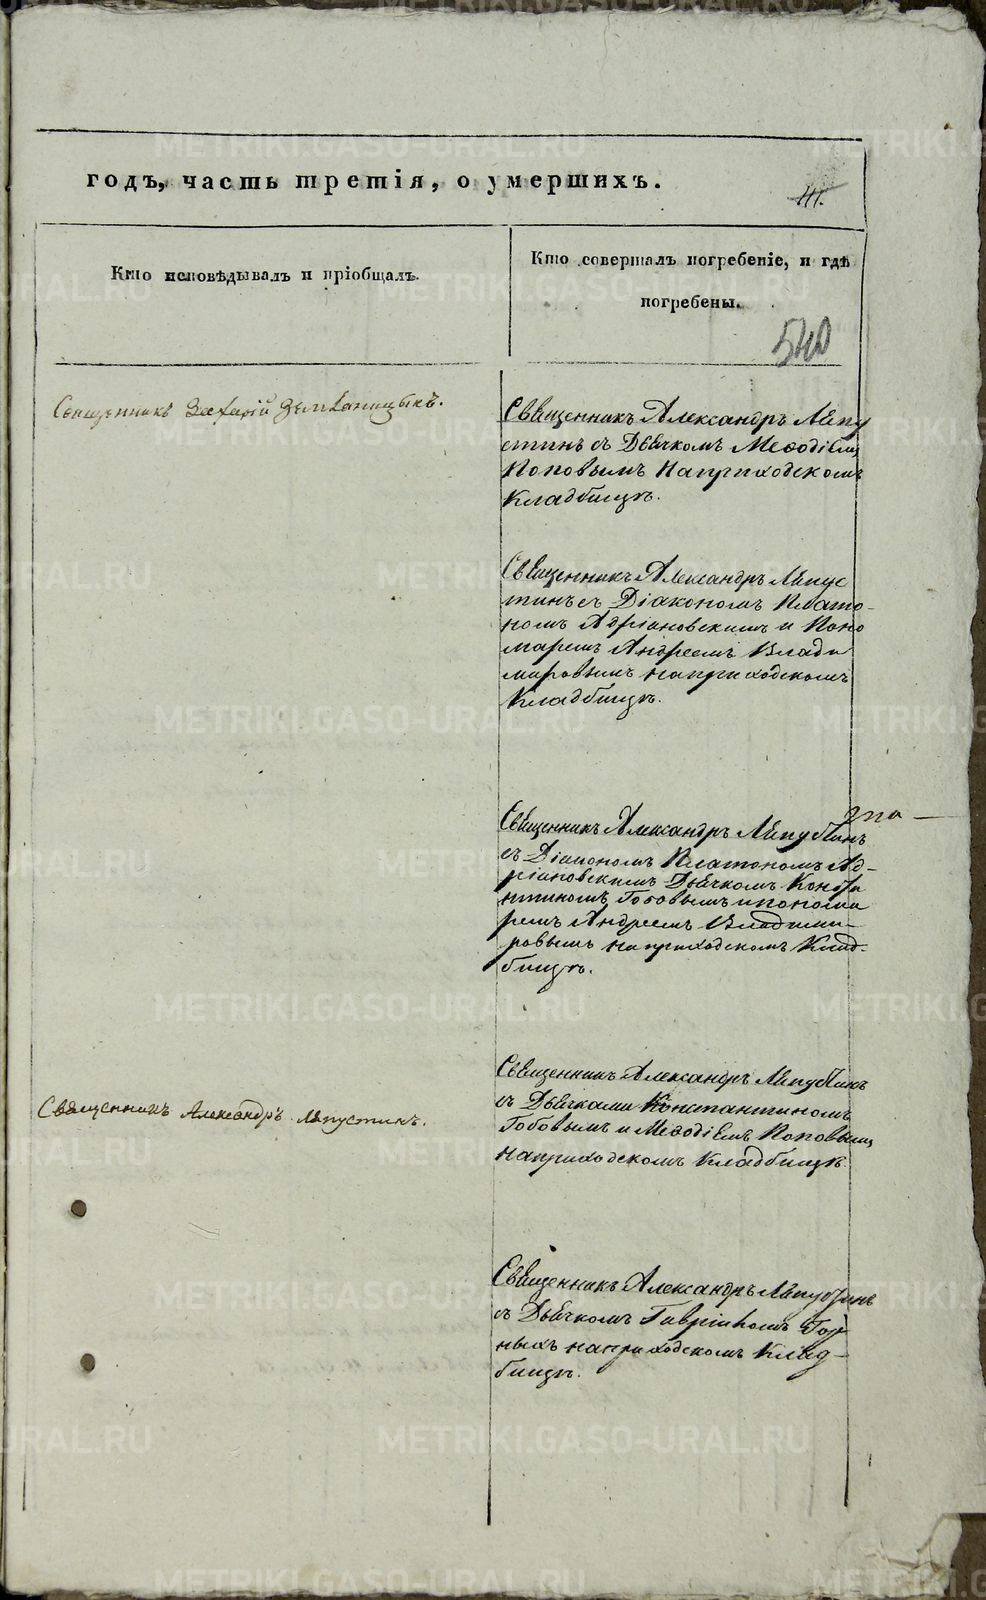 годъ, часть третія, о умершихъ.
Кто исповѣдывалъ и пріобщалъ.
Кто совершалъ погребеніе, и гдѣ
погребены.
540
Священникъ Захарій
Священникъ Александръ Ляпу
стинъ съ Дьячкомъ Меѳодіемъ
Поповымъ на приходскомъ
Кладбищѣ.
Священникъ Александръ Ляпус
тинъ съ Діакономъ Плато-
номъ Адріановскимъ и Поно
маремъ Андреемъ Влади
мировымъ на приходскомъ
Кладбищѣ.
Священникъ Александръ Ляпустинъ
съ Діакономъ Платономъ Ад-
ріановскимъ Дьячкомъ Конста
нтиномъ Гобовымъ и понома
ремъ Андреемъ Владими-
ровымъ на приходскомъ Клад-
бищѣ.
Священникъ Александръ Ляпустинъ
съ Дьячками Константиномъ
Гобовымъ и Меѳодіемъ Поповымъ
на приходскомъ Кладбищѣ.
Священникъ Александръ Ляпустинъ.
Священникъ Александръ Ляпустинъ
съ Дьячкомъ Гавріиломъ Гор
ныхъ на приходскомъ Клад-
бищѣ.
METRIKI.GASO-URAL.RU